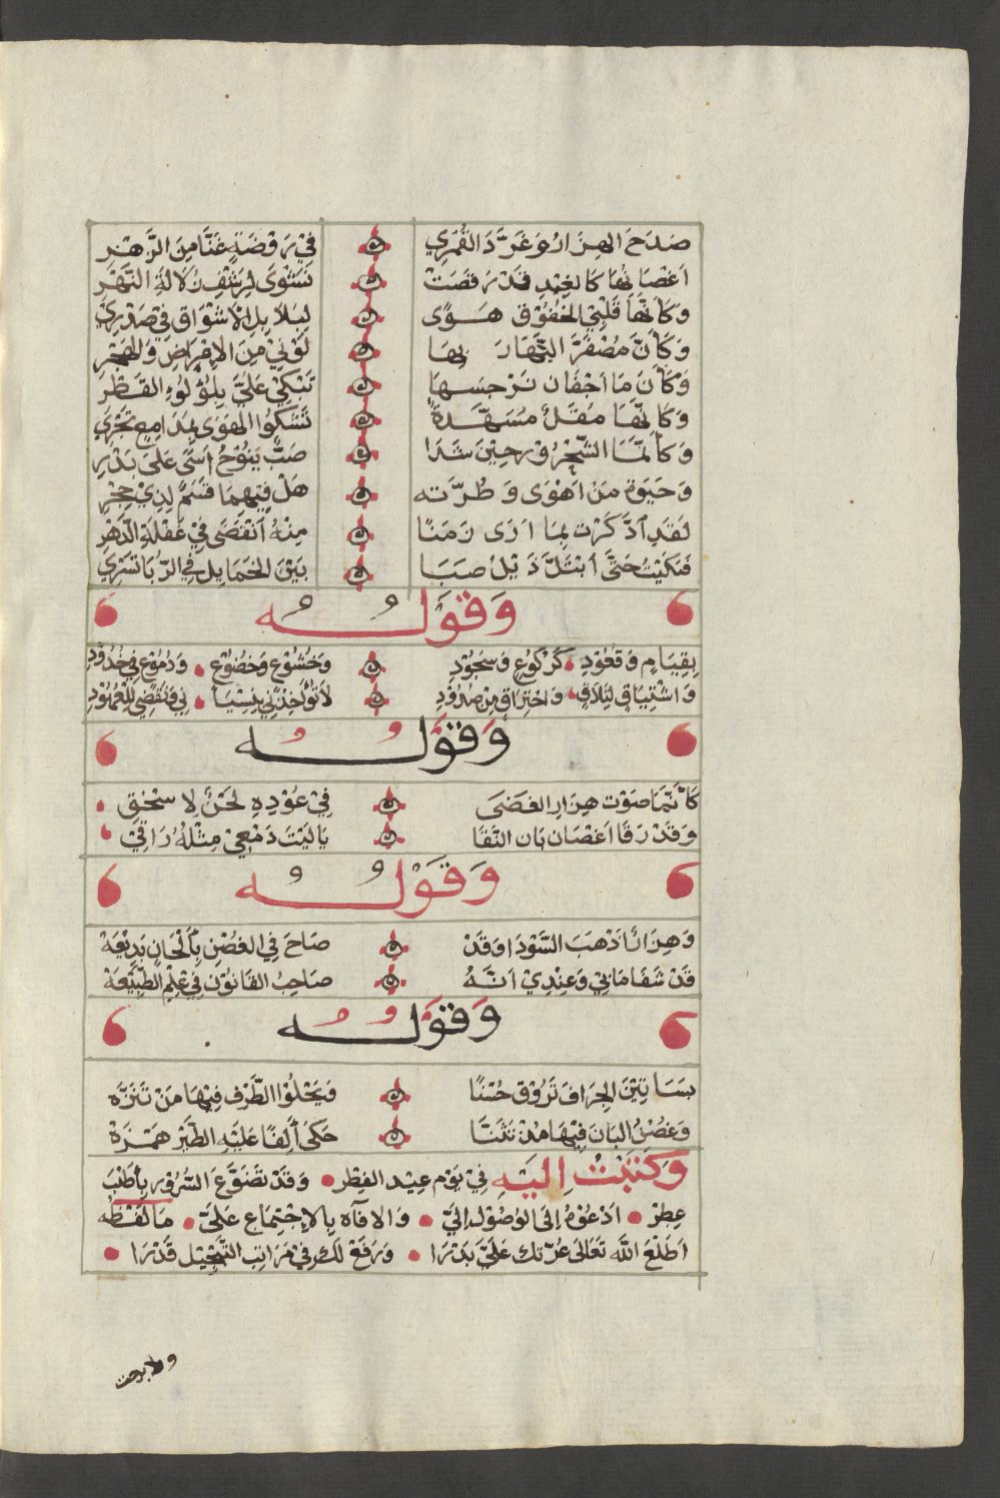 صَدَحَ الهِزَارُ وَغَرَّدَ القُمْرِي فِي رَوْضَةٍ غَنَّا مِنَ الزَّهْرِ
اَغْصَانُهَا كَالغِيْدِ قَدْ رَقَصَتْ نَشْوَى لِرَشْفِ زُلَالَةِ النَّهَرِ
وَكَاَنَّهَا قَلْبِي الخَفُوْق هَوًى لِبَلَابِلِ الْاَشْوَاق فِي صَدْرِيْ
وَكَاَنَّ مُصْفَرَّ البَهَارَ بِهَا لَوْنِيْ مِنَ الاِعْرَاضِ وَالهَجْرِ
وَكَاَنَ مَا اَجْفَان نَرْجِسِهَا تَبْكِيْ عَلَيَّ بِلُؤْلُوءِ القَطْرِ
وَكَاَنَّهَا مُقَلٌ مُسَهَّدَةٌ تَشْكُوا الهَوَى بِمَدَامِعٍ تَجْرِي
وَكَاَنَّمَا الشَّحْرُوْر حِيْنَ شَدَا صَبٌّ يَنُوْحُ اَسًى عَلَى بَدْرِ
وَحَيَوة مَنْ اَهْوَى وَ طُرَّته هَلْ فِيْهِمَا قَسَمٌ لِذِيْ حِجْرِ
لَقَدِ اَدَّكَرْت بِمَا اَرَى زَمَنًا مِنْهُ اَنْقَضَى فِيْ غَفْلَةِ الدَّهْرِ
فَبَكَيْتُ حَتَّى اُبْتَلَّ ذَيْلُ صَبَا بَيْنَ الخَمَايِل فِي الرُّبَا تَسْرِي
وَقَوْلُهُ
بِقِيَامٍ وَقَعُوْدِ كَرُكُوْعٍ وَسُجُوْدِ وَخُشُوْع وَخُضُوْعٍ وَدُمُوْعٍ فِيْ خُدُوْدِ
وَاشْتِيَاقٍ لِتَلَاقٍ وَاحْتِرَاقٍ مِنْ صُدُوْدِ لَا تُؤَاخِذْنِي بِنِسْيَا نِي وَنَقْضِي لِلْعُهُوْدِ
وَقَوْلُهُ
كَاَنَّمَا صَوْت هِزَارِ الغَضَى فِيْ عُوْدِهِ لَحْنٌ لِاِسْحٰق
وَقَدْ رَقَا اَغْصَان بَان النَّقَا يَالَيْتَ دَمْعِيْ مِثْلُهُ رَاقِيْ
وَقَوْلُهُ
وَهِزَارًا ذْهَبَ السَّوْدَا وَقَدْ صَاحَ فِي الغُصْنِ بِأَلْحَانٍ بَدِيْعَهْ
قَدْ شَفَا مَابِيْ وَعِنْدِيْ اَنَّهُ صَاحِبُ القَانُوْن فِيْ عِلْمِ الطَّبِيْعَهْ
وَقَوْلُهُ
بَسَاتِيْنَ الجِرَافَ تَرُوْق حُسْنًا وَيَحْلُوْا الطَّرْف فِيْهَا مَنْ تَنَزَّه
وَغُصْنُ البَانَ فِيْهَا مُذْ تَثَنَّا حَكَى اَلِفًا عَلَيْهِ الطَّيْرُ هَمْزَهْ
وَكَتَبْتُ اِلَيْهِ فِيْ يَوْم عِيْد الفِطْرِ وَقَدْ تَضَوَّعَ السُّرُوْر بِأَطْيَبَ
عِطْرِ اَدْعُوْهُ اِلَى الوُصُوْل اِلَيَّ وَالاِفَآه بِالاِجْتِمَاعِ عَلَيَّ مَا لَفْظُهُ
اَطْلَعَ اللَّه تَعَالَى عُرّتك عَلَيَّ بَدْرَا وَرَفَعَ لَكَ فِيْ مَرَاتِب التَّبْجِيْل قَدْرَا
ولا برحت